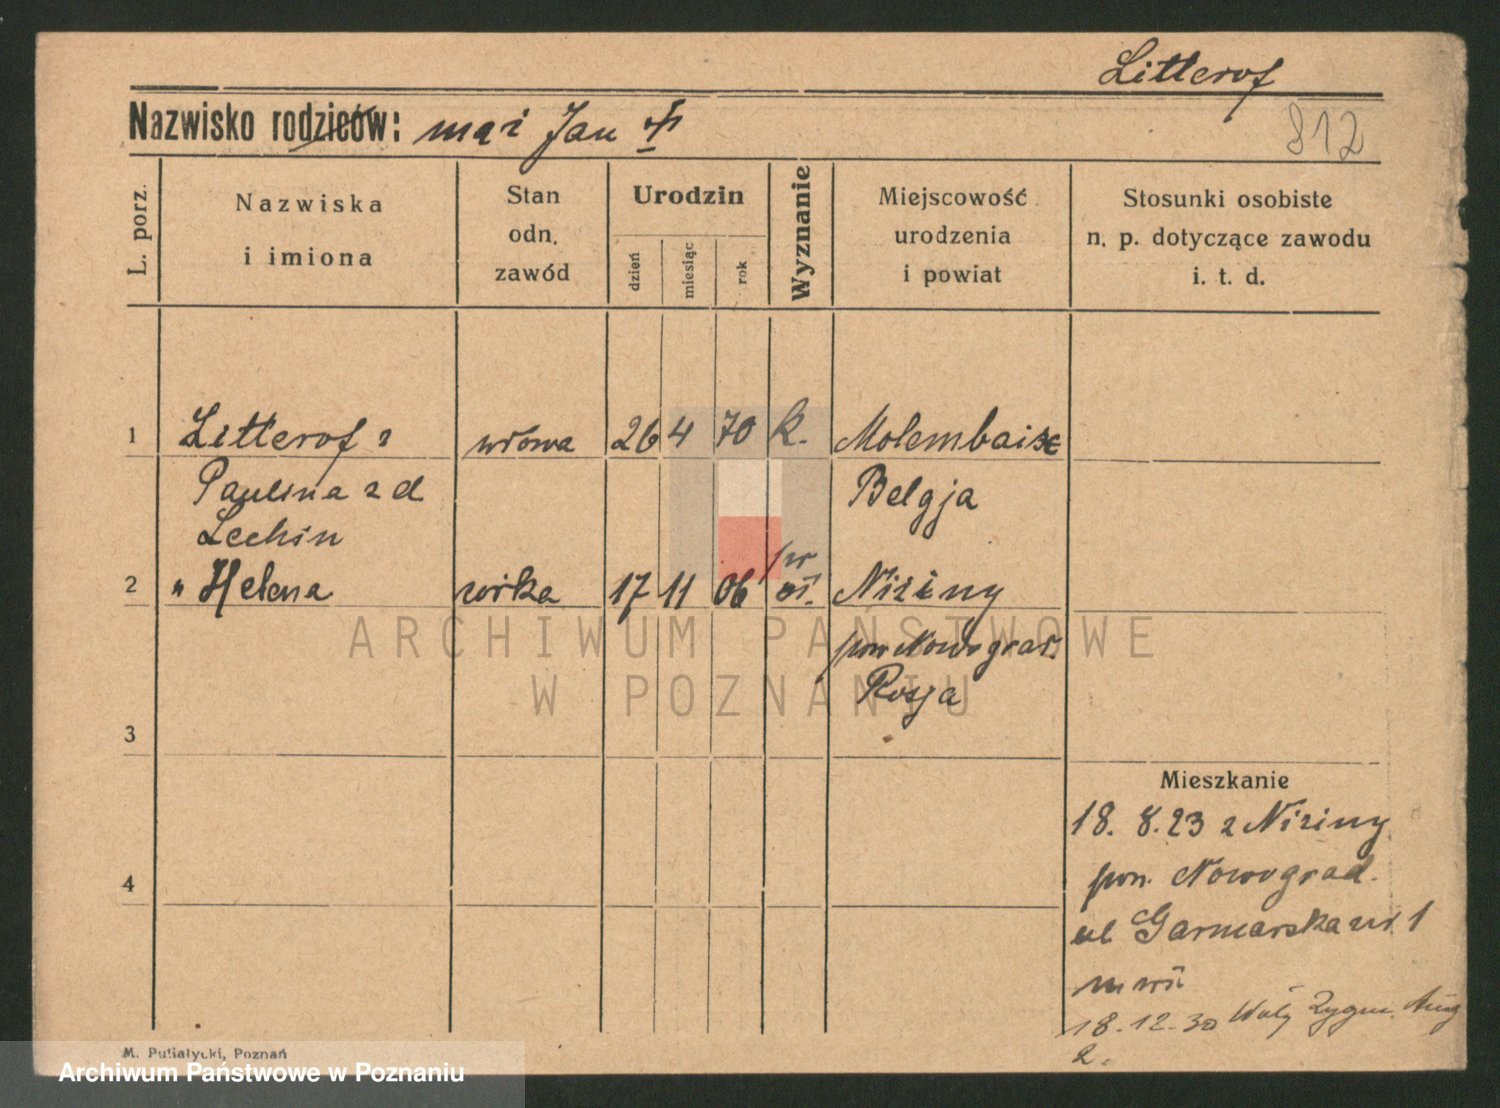 Litterof
Nazwisko rodziców: mąż Jan †
812
L. porz.
Nazwiska
i imiona
Stan
odn.
zawód
Urodzin
dzień
miesiąc
rok
Wyznanie
Miejscowość
urodzenia
i powiat
Stosunki osobiste
n. p. dotyczące zawodu
i. t. d.
1 Litterof z wdowa 26 4 70 k. Molembaise
Paulina z d Belgja
Lechin
2 " Helena córka 17 11 06 pr Niziny
pow Nowograd.
Rosja
3
4
Mieszkanie
18. 8. 23 z Niziny
pow. Nowograd.
ul Garncarska nr 1
18. 12. 30 Wały Zygm. Aug
2.
M. Putiatycki, Poznań
ARCHIWUM PAŃSTWOWE
W POZNANIU
Archiwum Państwowe w Poznaniu